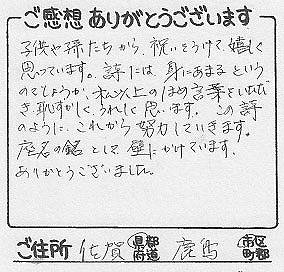 ご感想 ありがとうございます
子供や孫たちから、祝いをうけて嬉しく
思っています。詩には、身にあまるという
のでしょうか、私以上のほめ言葉をいただ
き、恥ずかしく、うれしく思います。この詩
のように、これから努力していきます。
座右の銘として壁にかけています。
ありがとうございました。
ご住所 佐賀 県都府道 鹿島 市区町郡